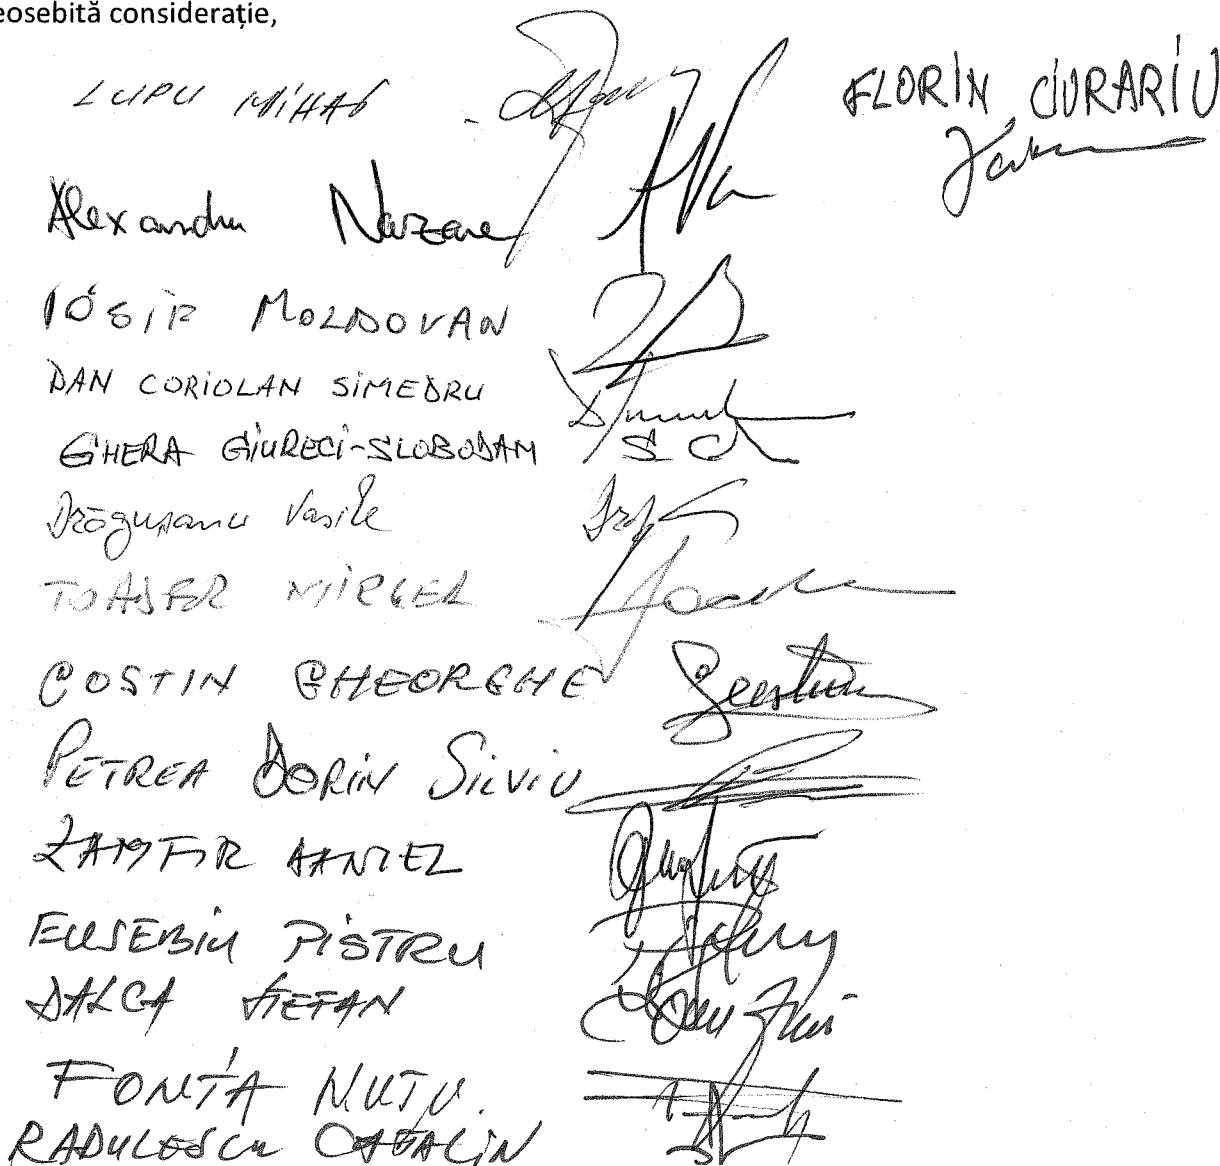 eosebită considerație,
LUPU MIHAI
FLORIN CIURARIU
Alexandru Nazare
IOSIF MOLDOVAN
DAN CORIOLAN SIMEDRU
GHERA GIURECI-SLOBODAN
Drăgușanu Vasile
TOADER MIRCEA
COSTIN GHEORGHE
PETREA DORIN SILVIU
ZAMFIR DANIEL
EUSEBIU PISTRU
DALCA ȘTEFAN
FONTA NUȚU
RADULESCU CATALIN